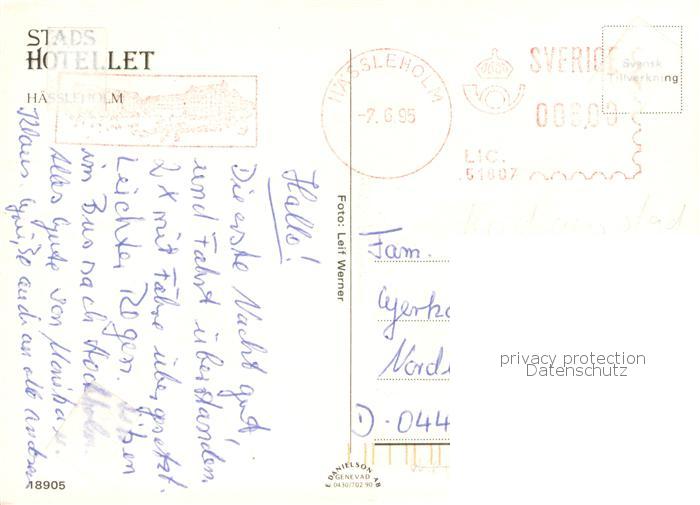 STADS
HOTELLET
HÄSSLEHOLM
HÄSSLEHOLM
-7.6.95
SVERIGE
00800
LIC.
51607
Svensk
Tillverkning
Hallo!
Die erste Nacht gut
und Fahrt überstanden.
2x mit Fähre übergesetzt.
Leichter Regen. Sitzen
im Bus nach Stockholm.
Alles Gute von Monika u.
Klaus. Grüße auch an alle anderen
Foto: Leif Werner
Fam.
Gerh
Nord
D - 044
privacy protection
Datenschutz
E DANIELSON AB
GENEVAD
0430/702 90
18905